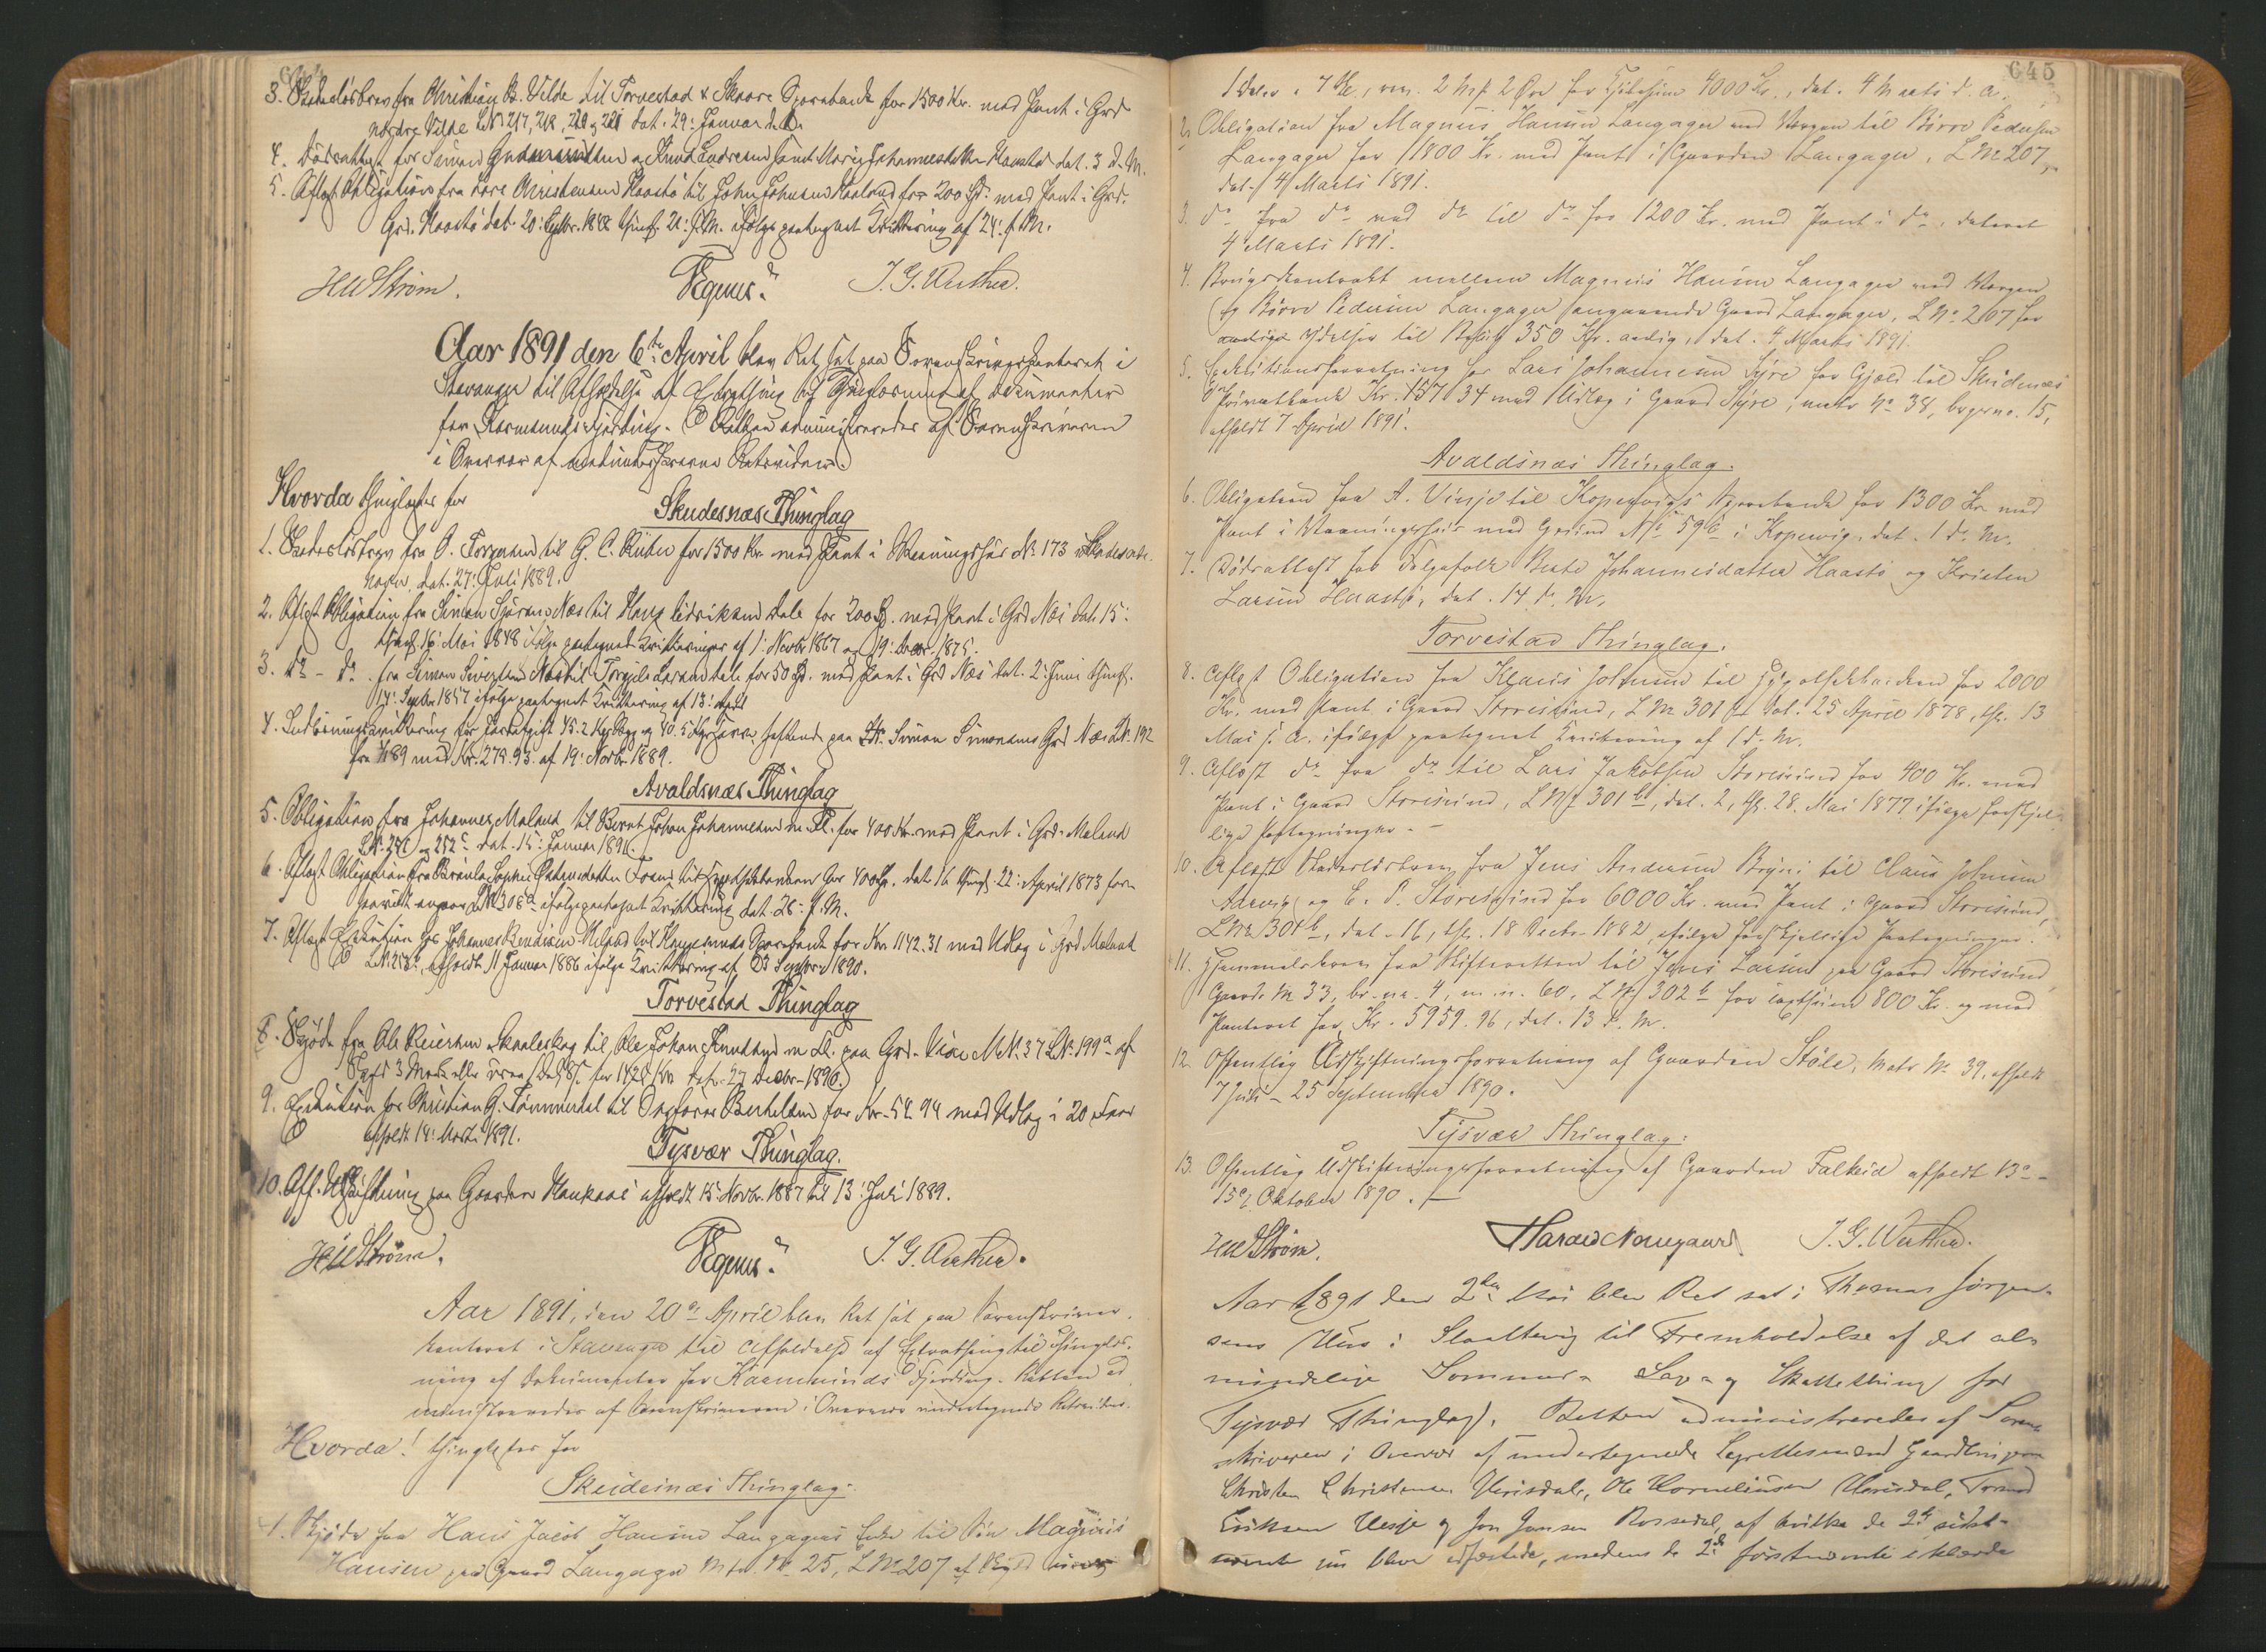 644
3. Skadesløsbrev fra Christian B. Velde til Torvestad & Skaare Sparebank for 1500 Kr. med Pant i Grd
nordre Velde LN 217, 218, 220 og 221 dat. 29: Januar d. A.
4. Dødsattest for Simon Gudmundsen og Knud Endresen samt Marie Johannesdatter Haasto dat. 3 d. M.
5. Aflæst Obligation fra Lars Christensen Haastø til John Johnsen Haaland for 200 Spd. med Pant i Grd.
Grd. Haastø dat. 20: thingl. 21: ifølge paategnet Kvittering af 24: f. M.
Strøm. Vegner. J. G. Werther.
Aar 1891 den 6te April blev Ret sat paa Sorenskriverkontoret i
Stavanger til Afholdelse af Extrathing til Thinglæsning af Dokumenter
for Karmsunds Fjerding. Retten administreredes af Sorenskriveren
i Overvær af undertegnede Retsvidner.
Hvorda thinglæstes for
Skudesnæs Thinglag
1. Skadesløsbrev fra O. Torgersen til G. C. for 1500 Kr. med Pant i Vaaningshus No 173 i Skudesnæs-
havn, dat. 27: Juli 1889.
2. Aflæst Obligation fra Simon Næs til Hans Didriksen Dale for 200 Spd. med Pant i Grd Næs dat. 15:
thingl. 16: Mai 1848 ifølge paategnede Kvitteringer af 1: Novbr 1867 og 19: 1875.
3. do - do. fra Simon Sivertsen Næs til Torgils Larsen Dale for 50 Spd. med Pant i Grd Næs dat. 2: Juni thingl.
14: Septbr 1857 ifølge paategnet Kvittering af 13:
4. Indløsningskvittering for Jordafgift 45.2 Kgr Byg og 40.5 Kgr Havre heftende paa Simon Simonsens Grd Næs LN. 192
fra 1/1 89 med Kr. 279.93. af 19: Novbr. 1889.
Avaldsnæs Thinglag
5. Obligation fra Johannes Meland til Bernt Johan Johannesen m. Fl. for 400 Kr. med Pant i Grd. Meland
LN. og 252c dat. 15: Januar 1891.
6. Aflæst Obligation fra Sophie Pedersdatter til Hypothekbanken for 400 Spd. dat. 16 thingl. 22: April 1873
LN 308a ifølge paategnet Kvittering dat. 26: f. M.
7. Aflæst Exekution hos Johannes Meland til Haugesunds Sparebank for Kr 1142.31 med Udlæg i Grd. Meland
LN. afholdt 11 Januar 1886 ifølge Kvittering af 23 Septbr 1890.
Torvestad Thinglag
8. Skjøde fra Ole Reiersen Skaaleskog til Ole Johan Knudsen m. Fl. paa Grd. MN. 37 LN. 199a af
Skyld 3 Mark for 1420 Kr dat. 27 Decbr 1890.
9. Exekution hos Christian G. Tømmerdal til Berthelsen for Kr. 54.94 med Udlæg i 20 Faar
afholdt 14: Marts 1891.
Tysvær Thinglag.
10. Off. Udskiftning paa Gaarden Haukaas afholdt 15: Novbr. 1887 til 13: Juli 1889.
Strøm. Vegner. J. G. Werther.
Aar 1891, den 20de April blev Ret sat paa Sorenskriver-
kontoret i Stavanger til Afholdelse af Extrathing til Thinglæs-
ning af Dokumenter for Karmsunds Fjerding. Retten ad-
ministreredes af Sorenskriveren i Overvær undertegnede Retsvidner.
Hvorda! thinglæstes for
Skudesnæs Thinglag.
1. Skjøde fra Hans Jacob Hansen Langager til Søn Magnus
Hansen paa Gaard Langager Mtr. No 25, L No 207 af Skyld
645
1 Daler 4 , rev. 2 Mrk 2 Øre for Kjøbesum 4000 Kr., dat. 4 Marts d. A.
2. Obligation fra Magnus Hansen Langager med Værgen til Børre Pedersen
Langager for 1800 Kr. med Pant i Gaarden Langager, L No 207,
dat. 4 Marts 1891.
3. do fra do med do til do for 1200 Kr. med Pant i do, dateret
4 Marts 1891.
4. Brugskontrakt mellem Magnus Hansen Langager med Værgen
og Børre Pedersen Langager angaaende Gaard Langager, L No 207 for
aarlige Ydelser til Beløb 350 Kr. aarlig, dat. 4 Marts 1891.
5. Exekutionsforretning hos Lars Johannesen Syre for Gjæld til Skudenæs
Privatbank Kr. 157.34 med Udlæg i Gaard Syre, matr No 38, brugsno. 15,
afholdt 7 April 1891.
Avaldsnæs Thinglag.
6. Obligation fra A. Vinje til Kopervigs Sparebank for 1300 Kr med
Pant i Vaaningshus med Grund No 59b i Kopervig, dat. 1 d. M.
7. Dødsattest for Følgefolk Berte Johannesdatter Haastø og Kristen
Larsen Haastø, dat. 14 d. M.
Torvestad Thinglag.
8. Aflæst Obligation fra Klaus Johnsen til Hypothekbanken for 2000
Kr. med Pant i Gaard Storesund, L No 301 b dat. 25 April 1878, thgl. 13
Mai s. A. ifølge paategnet Kvittering af 1 d. M.
9. Aflæst do fra do til Lars Jakobsen Storesund for 400 Kr. med
Pant i Gaard Storesund, L No 301 b, dat. 2, thgl. 28. Mai 1877 ifølge forskjel-
lige Paategninger. -
10. Aflæst Skadesløsbrev fra Jens Andersen Bryni til Claus Johnsen
og C. P. Storesund for 6000 Kr. med Pant i Gaard Storesund,
L No 301 b, dat. 16, thgl. 18 Decbr. 1882, ifølge forskjellige Paategninger.
11. Hjemmelsbrev fra Skifteretten til Jens Larsen paa Gaard Storesund,
Gaards No 33, br. nr. 4, m. n. 60, L No 302 b for Kjøbesum 800 Kr. og med
Panteret for Kr. 5959.96, dat. 13 d. M.
12. Offentlig Udskiftningsforretning af Gaarden Støle, Matr No 39, afholdt
7 Juli - 25 September 1890.
Tysvær Thinglag.
13. Offentlig Udskiftningsforretning af Gaarden Falkeid afholdt 13de -
15de Oktober 1890. -
Strøm. Harald Nougaard J. G. Werther.
Aar 1891 den 2den Mai blev Ret sat i Thomas Jørgen-
sens Hus i Slaattevig til Fremholdelse af det al-
mindelige Sommer- Sage- og Skattething for
Tysvær Thinglag. Retten administreredes af Soren-
skriveren i Overvær af undertegnede Lagrettesmænd Gaardbrugerne
Christen Christensen Hervisdal, Ole Korneliussen Hervisdal, Tormod
Eriksen Vesje og Jon Jonsen Rossedal, af hvilke de 2de sidst-
nævnte nu blev edfæstede, medens de 2de førstnævnte erklærede